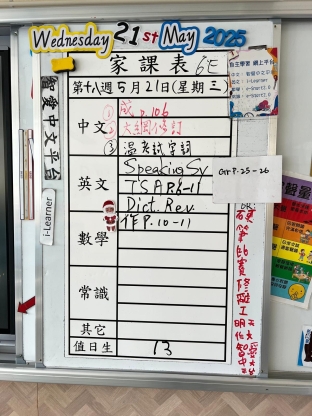 Wednesday 21st May 2025
家課表 6E
第十八週 5月21日(星期三)
中文
① 成 p.106
② 大網小訂
③ 溫考試字詞
英文
Speaking Sy
TSA P.8-11
Dict. Rev.
Gr P.25-26
數學
作 P.10-11
常識
其它
值日生
13
智愛中文平台
i-Learner
自主學習 網上平台
硬筆比賽
修
工
明天